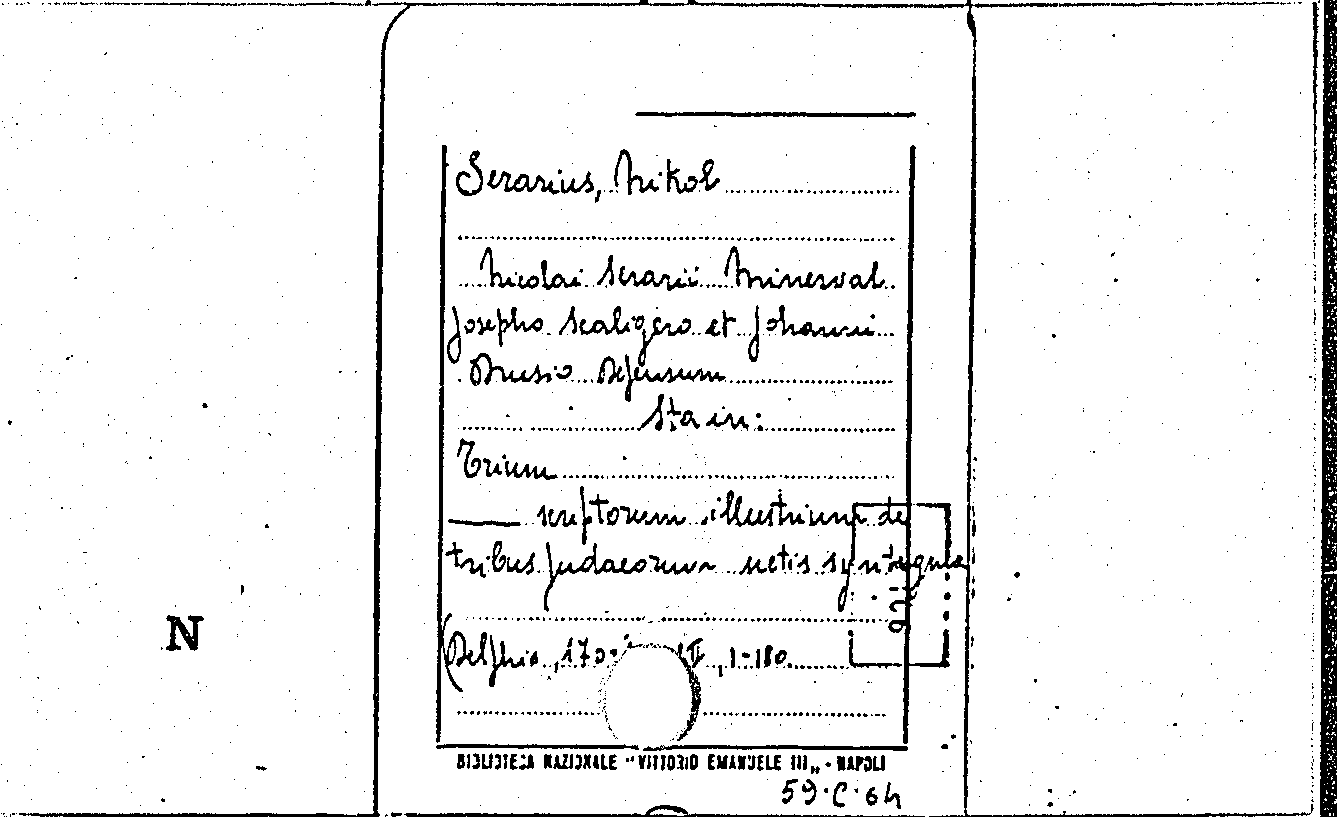 Serarius, Nikol
Nicolai Serarii Minerval
Josepho Scaligero et Johanni
Drusio Defensum
Sta in:
Trium
scriptorum illustrium de
tribus Judaeorum sectis syntagma
(Delphis, 170 II, 1-180.
N
BIBLIOTECA NAZIONALE "VITTORIO EMANUELE III„ - NAPOLI
59·C·64